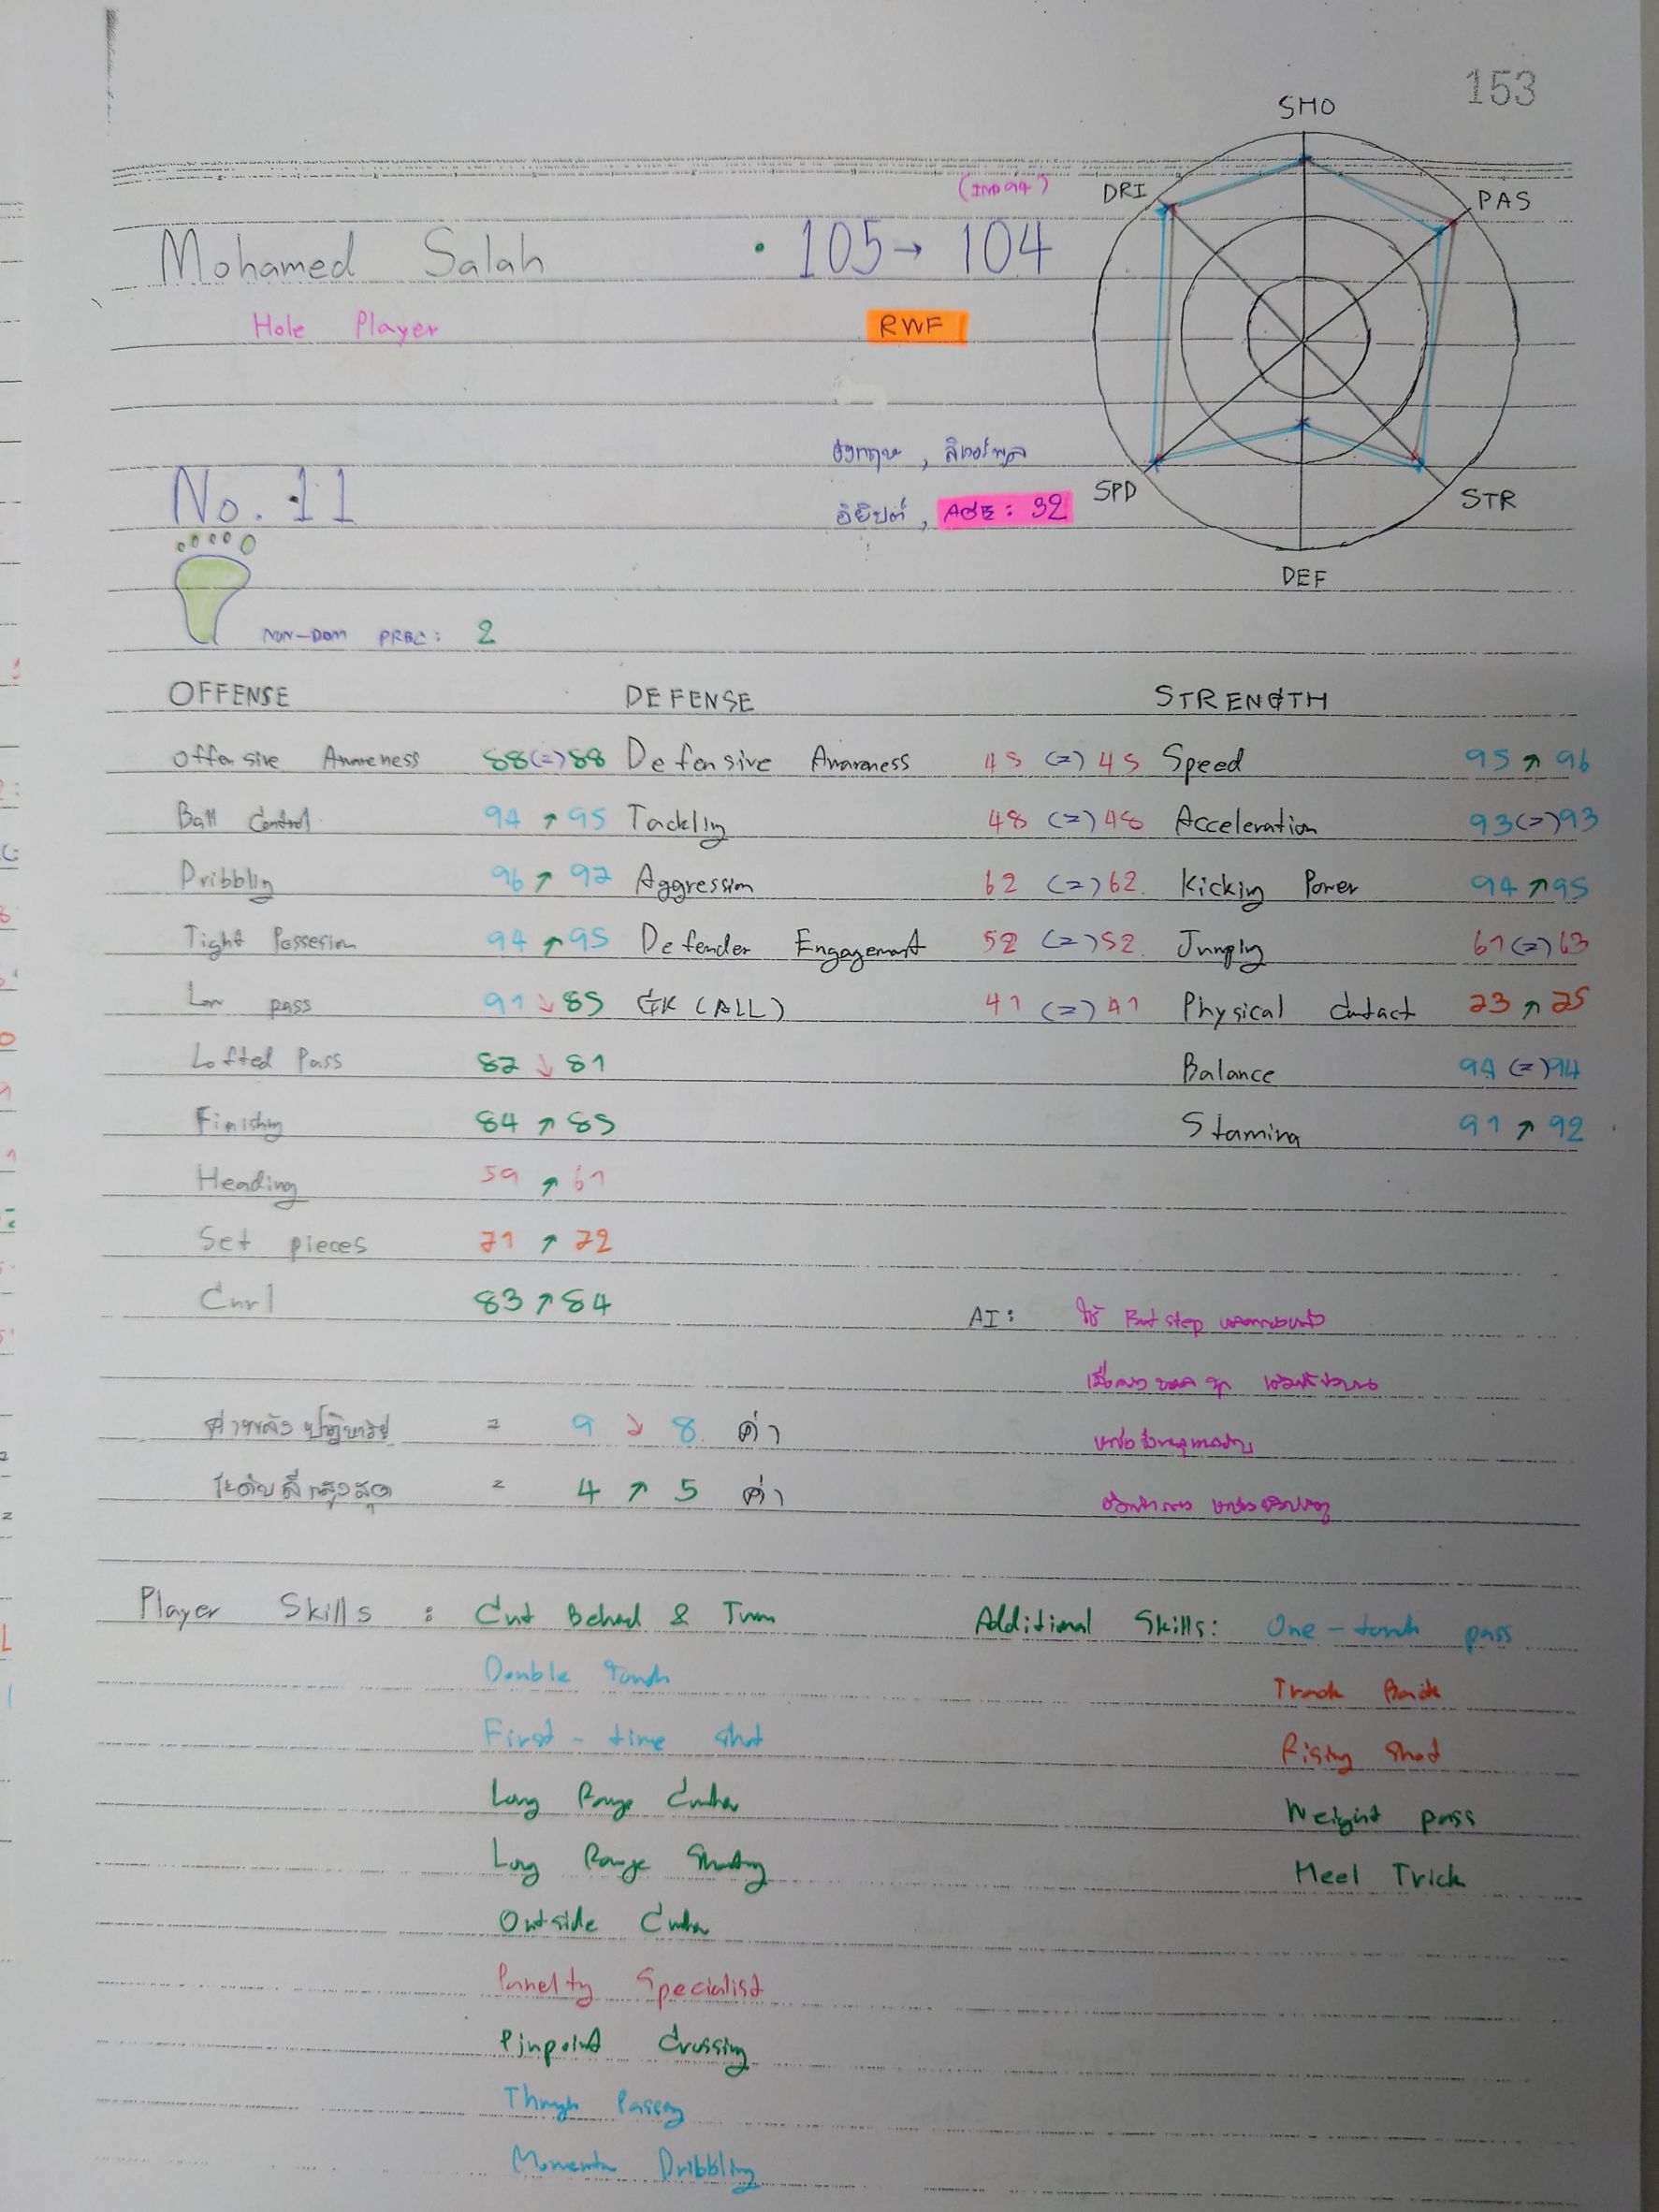 153
SHO
(IND94)
DRI
PAS
Mohamed Salah · 105 → 104
Hole Player RWF
อังกฤษ , ลิเวอร์พูล
SPD
STR
No. 11 อียิปต์ , AGE: 32
DEF
NON-DOM PREC: 2
OFFENSE DEFENSE STRENGTH
Offensive Awareness 88(=)88 Defensive Awareness 45 (=) 45 Speed 95 ↗ 96
Ball Control 94 ↑ 95 Tackling 48 (=) 48 Acceleration 93(=)93
Dribbling 96 ↑ 97 Aggression 62 (=) 62. Kicking Power 94 ↗ 95
Tight Possesion 94 ↗ 95 Defender Engagement 52 (=) 52. Jumping 61(=)63
Low pass 91 ↘ 85 GK (ALL) 41 (=) 41 Physical Contact 73 ↗ 75
Lofted Pass 82 ↓ 81 Balance 94 (=) 94
Finishing 84 ↗ 85 Stamina 91 ↗ 92
Heading 59 ↗ 61
Set pieces 71 ↑ 72
Curl 83 ↗ 84 AI: ใช้
= 9 ↘ 8 ค่า
ระดับสีสูงสุด = 4 ↗ 5 ค่า
Player Skills : Cut Behind & Turn Additional Skills: One-touch pass
Double Touch Track Back
First-time shot Rising Shot
Long Range Curler Weight pass
Long Range Shooting Heel Trick
Outside Curler
Panelty Specialist
Pinpoint Crossing
Through Passing
Momentum Dribbling